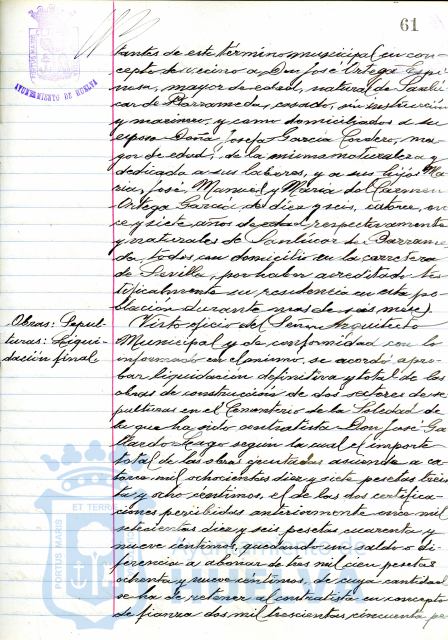 61
AYUNTAMIENTO DE HUELVA
tantes de este término municipal (en con-
cepto de vecino a Don José Ortega Espi-
nosa, mayor de edad, natural de Sanlú-
car de Barrameda, casado, sin instrucción
y marinero, y como domiciliados a su
esposa Doña Josefa García Cordero, ma-
yor de edad, de la misma naturaleza y
dedicada a sus labores, y a sus hijos Ma-
ría, José, Manuel y María del Carmen
Ortega García de diez y seis, catorce, on-
ce y siete años de edad respectivamente
y naturales de Sanlúcar de Barrame-
da, todos con domicilio en la carretera
de Sevilla, por haber acreditado tes-
tificalmente su residencia en esta po-
blación durante mas de seis meses.
Obras: Sepul-
turas: Liqui-
dación final
Visto oficio del Señor Arquitecto
Municipal y de conformidad con lo
informado en el mismo, se acordó apro-
bar liquidación definitiva y total de las
obras de construcción de dos sectores de se-
pulturas en el Cementerio de la Soledad de
la que ha sido contratista Don José Ga-
llardo Lago según la cual el importe
total de las obras ejecutadas asciende a ca-
torce mil ochocientas diez y siete pesetas trein-
ta y ocho centimos, el de las dos certifica-
ciones percibidas anteriormente once mil
setecientas diez y seis pesetas cuarenta y
nueve centimos, quedando un saldo o di-
ferencia a abonar de tres mil cien pesetas
ochenta y nueve centimos, de cuya cantidad
se ha de retener al contratista en concepto
de fianza dos mil trescientas cincuenta pe-
PORTUS MARIS ET TERRAE
Ayuntamiento de
HUELVA